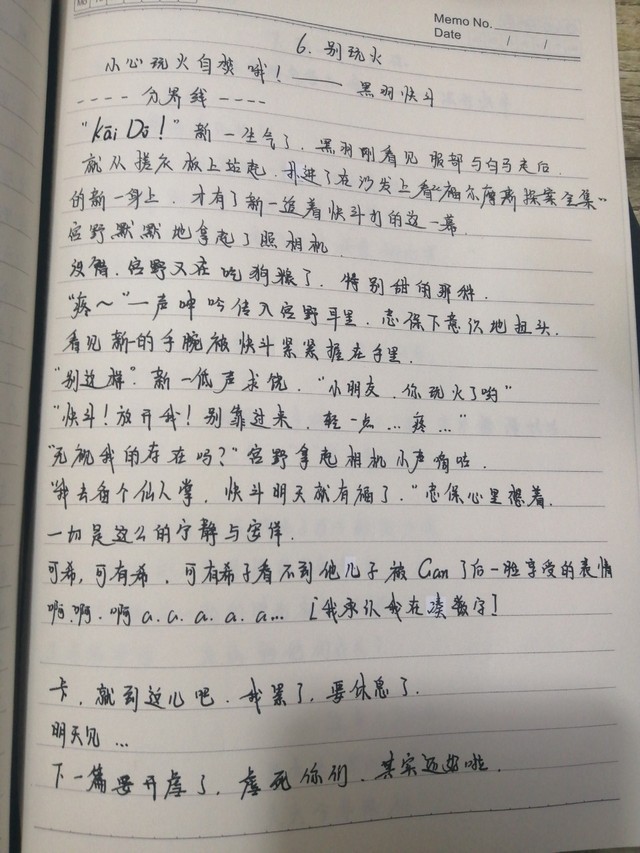 Memo No.
Date / /
6. 别玩火
小心玩火自焚哦！—— 黑羽快斗
---- 分界线 ----
"kāi Dō！" 新一生气了，黑羽刚看见服部与白马走后，
就从搓衣板上站起，扑进了在沙发上看"福尔摩斯探案全集"
的新一身上，才有了新一追着快斗打的这一幕.
宫野默默地拿起了照相机.
没错，宫野又在吃狗粮了，特别甜的那种.
"疼～"一声呻吟传入宫野耳里，志保下意识地扭头，
看见新一的手腕被快斗紧紧握在手里.
"别这样"，新一低声求饶，"小朋友，你玩火了哟"
"快斗！放开我！别靠过来，轻一点…疼…"
"无视我的存在吗？"宫野拿起相机小声嘀咕.
"我去看个仙人掌，快斗明天就有福了."志保心里想着.
一切是这么的宁静与安详.
可希，可有希，可有希子看不到他儿子被 Gan 了后一脸享受的表情
啊.啊.啊 a. a. a. a. a… [我承认我在凑数字]
卡，就到这儿吧，我累了，要休息了.
明天见 …
下一篇要开虐了，虐死你们，其实还好啦.